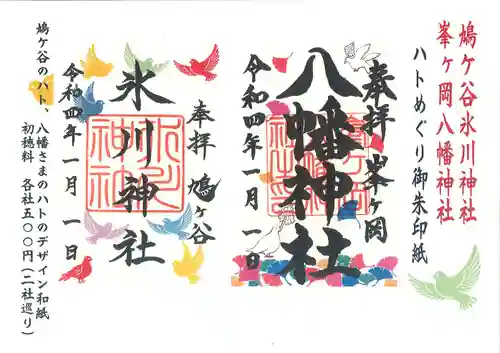 鳩ヶ谷氷川神社
峯ヶ岡八幡神社
ハトめぐり御朱印紙
奉拝 峯ヶ岡
八幡神社
令和四年一月一日
奉拝 鳩ヶ谷
氷川神社
令和四年一月一日
鳩ケ谷のハト、八幡さまのハトのデザイン和紙
初穂料 各社五〇〇円(二社巡り)